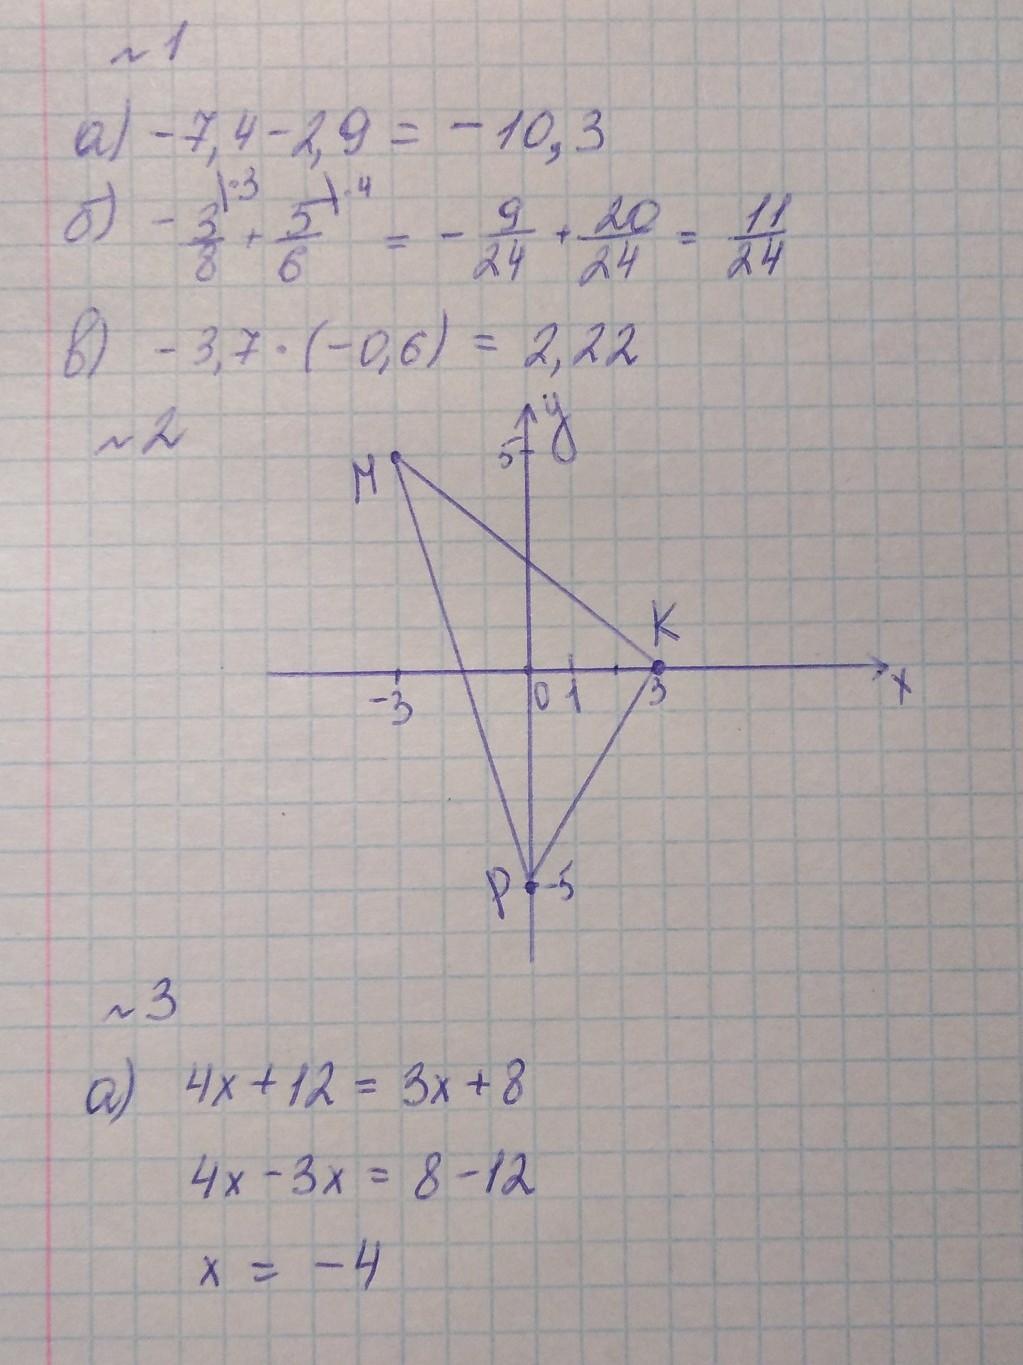 ~1
а) -7,4-2,9 = -10,3
б) -3/8|·3 + 5/6|·4 = -9/24 + 20/24 = 11/24
в) -3,7·(-0,6) = 2,22
~2
y
5
M
K
-3 0 1 3 x
P -5
~3
а) 4x+12 = 3x+8
4x-3x = 8-12
x = -4